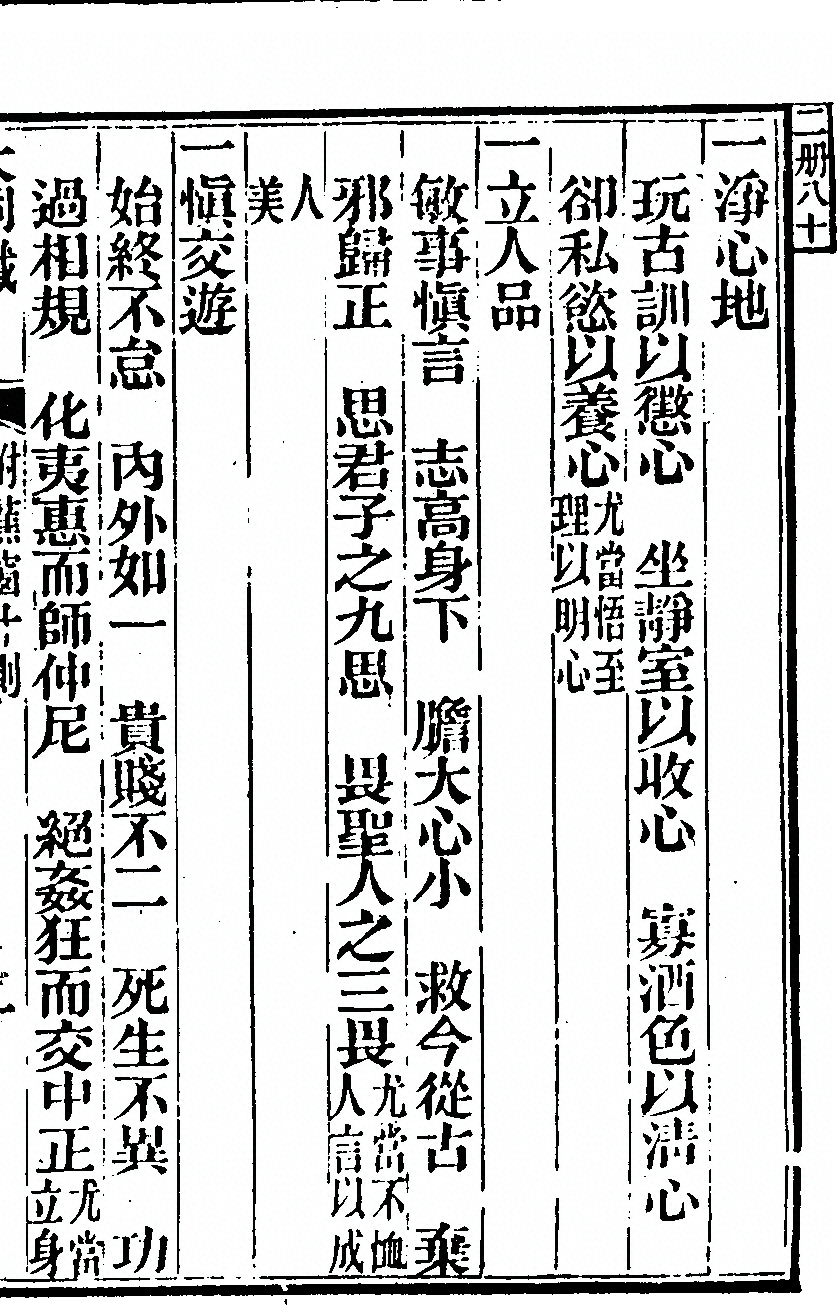 二册八十
一淨心地
玩古訓以懲心　坐靜室以收心　寡酒色以清心
卻私慾以養心尤當悟至理以明心
一立人品
敏事愼言　志高身下　膽大心小　救今從古　棄
邪歸正　思君子之九思　畏聖人之三畏尤當不恤人言以成
人美
一愼交遊
始終不怠　內外如一　貴賤不二　死生不異　功
過相規　化夷惠而師仲尼　絕姦狂而交中正尤當立身